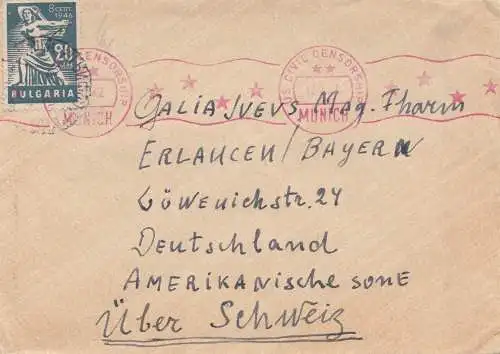 8 СЕПТ. 1946
20 ЛВ.
BULGARIA
US CIVIL CENSORSHIP
MUNICH
CIVIL CENSORSHIP
MUNICH
GALIA IVEVS Mag. Pharm
ERLANGEN/BAYERN
Löwenichstr. 24
Deutschland
AMERIKANISCHE SONE
Über Schweiz